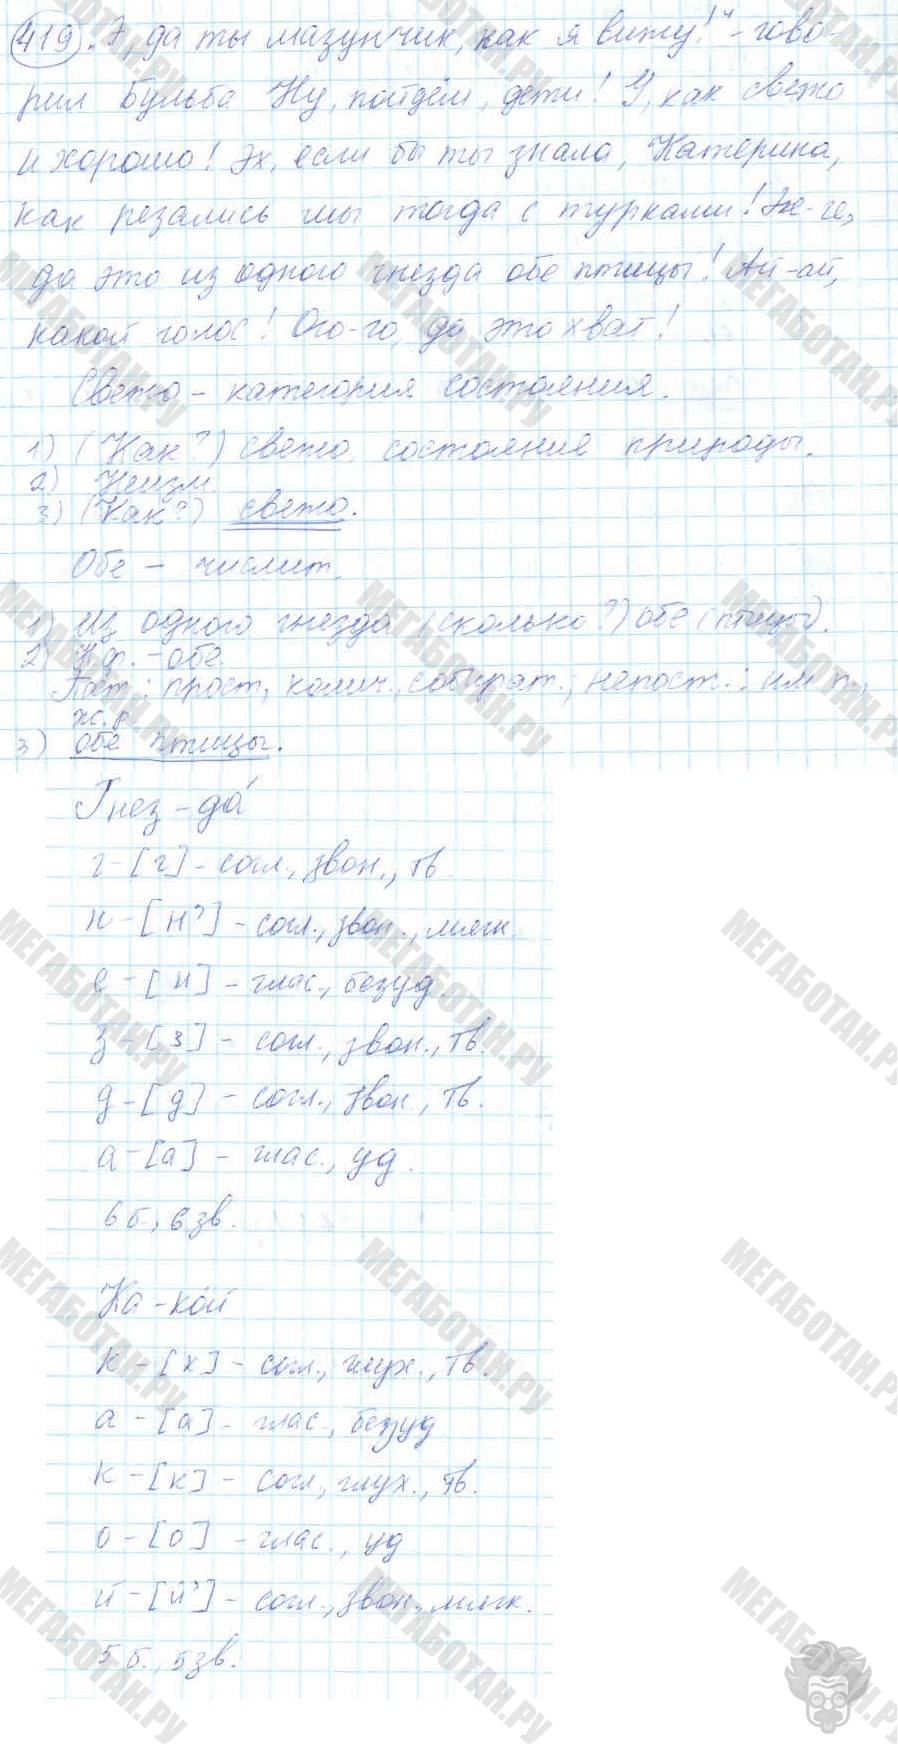 419. Э, да ты мазунчик, как я вижу!" - гово-
рил Бульба Ну, пойдём, дети! У, как свежо
и хорошо! Эх, если бы ты знала, Катерина,
как резались мы тогда с турками! Эге-ге,
да это из одного гнезда обе птицы! Ай-ай,
какой голос! Ого-го, да это хват!
Свежо - категория состояния.
1) (Как?) свежо, состояние природы.
2) Неизм.
3) (Как?) свежо.
Обе - числит.
1) Из одного гнезда (сколько?) обе (птицы).
2) Н.ф. - обе.
Пост.: прост., колич., собират.; непост.: им. п.,
ж.р.
3) обе птицы.
Гнез-да́
г-[г]-согл., звон., тв.
н-[н']-согл., звон., мягк.
е-[и]-глас., безуд.
з-[з]-согл., звон., тв.
д-[д]-согл., звон., тв.
а-[а]-глас., уд.
6 б., 6 зв.
Ка-кой
к-[к]-согл., глух., тв.
а-[а]-глас., безуд
к-[к]-согл., глух., тв.
о-[о]-глас., уд
й-[й']-согл., звон., мягк.
5 б., 5 зв.
МЕГАБОТАН.РУ